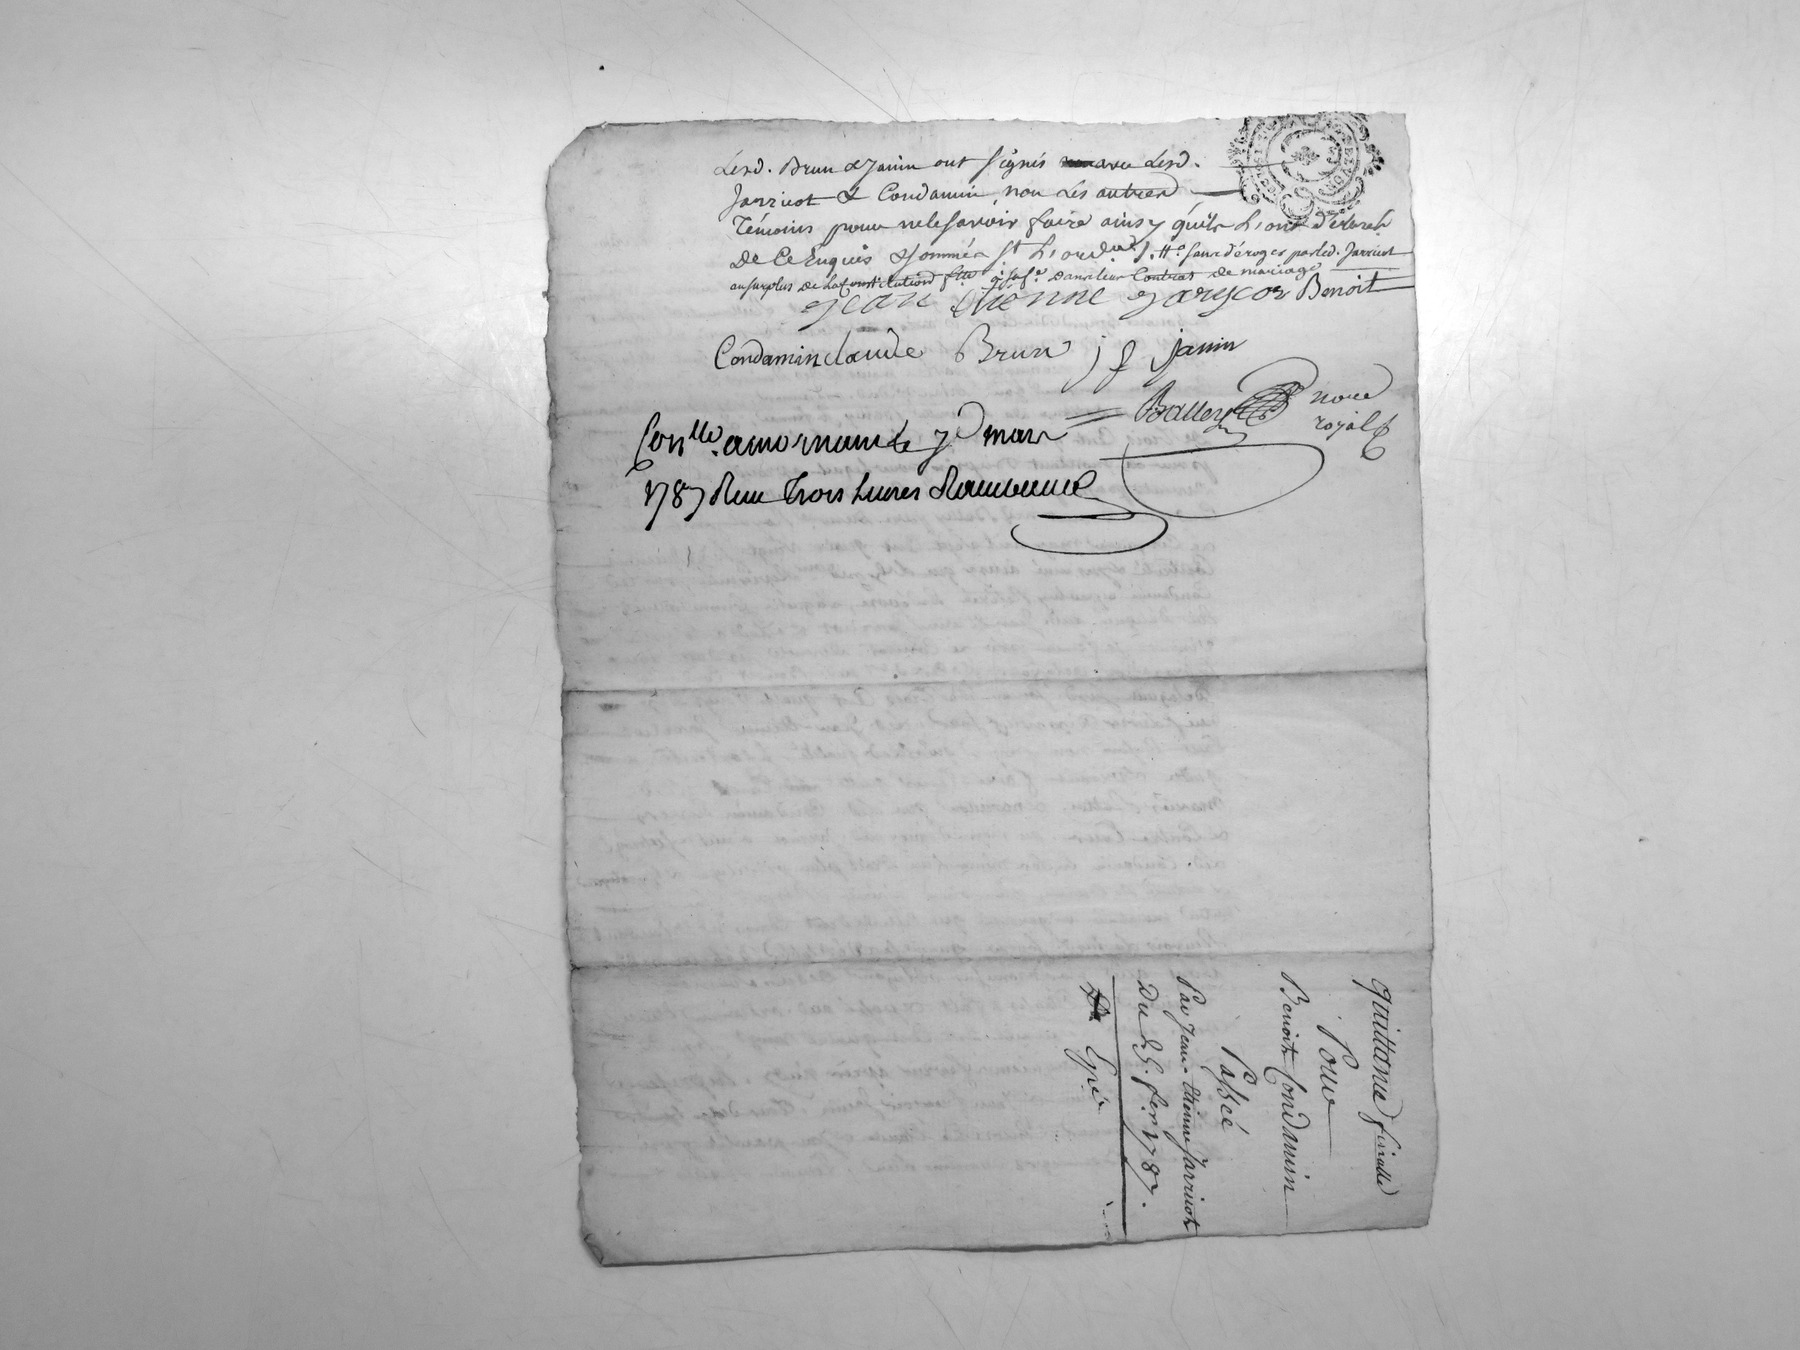 Lesd. Brun & Janin ont signés avec Lesd.
Jarricot & Condamin, non Les autres
Témoins pour ne le savoir faire ainsy qu'ils L'ont déclaré
De Ce Enquis & sommés st L'ord. sans déroger par led. Jarricot
au surplus de La Constitution dans leur Contrat de mariage
jean etienne jarycot Benoit
Condamin claude Brun j f janin
Ballery nore
royal
Conlle. a mornant le 7 mars
1787 Reçu trois livres
quittance finalle
Pour
Benoit Condamin
Passée
Par Jean-Etienne Jarricot
Du 25. fer. 1787.
Expé